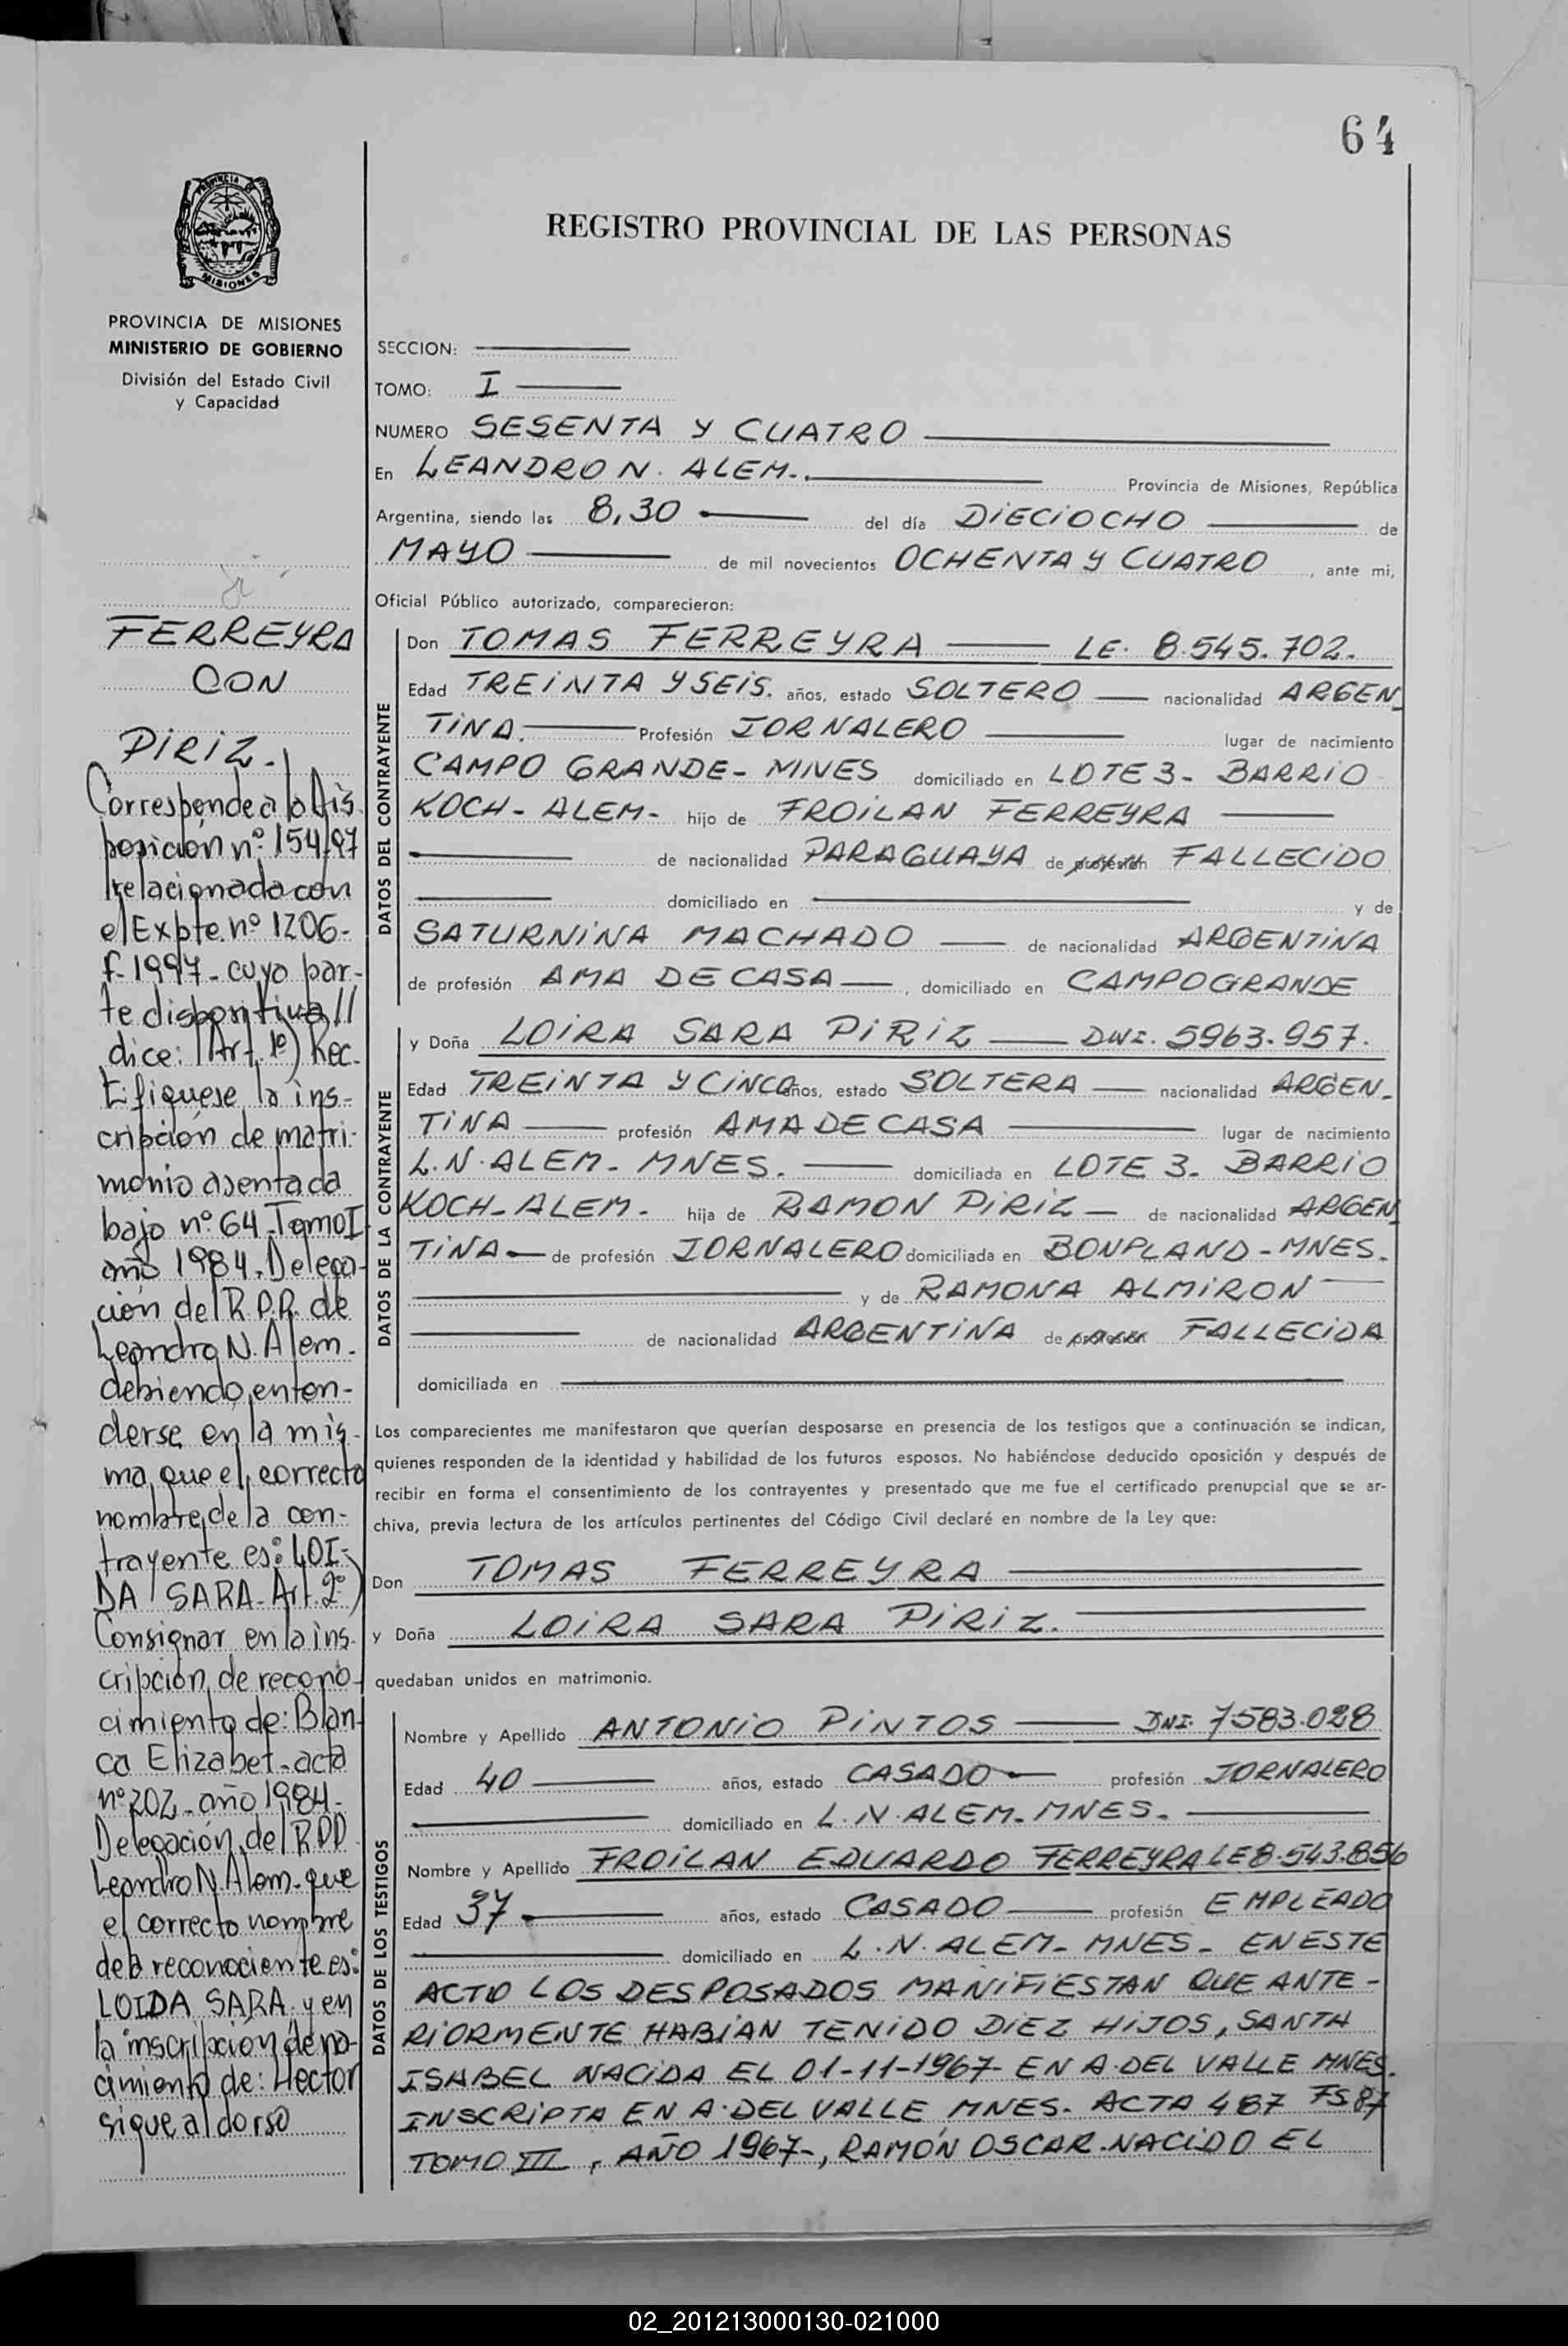 64
PROVINCIA DE
MISIONES
PROVINCIA DE MISIONES
MINISTERIO DE GOBIERNO
División del Estado Civil
y Capacidad
FERREYRA
CON
PIRIZ.-
Corresponde a la Dis
posición nº: 154/97
relacionada con
el Expte. nº 1206-
f-1997- cuya par-
te dispositiva//
dice: (Art. 1º) Rec-
tifiquese la ins-
cripción de matri-
monio asentada
bajo nº 64-Tomo I
año 1984. Delega-
ción del R.P.P. de
Leandro N. Alem.
debiendo enten-
derse en la mis-
ma, que el correcto
nombre de la con-
trayente es: LOI-
DA SARA- Art. 2º)
Consignar en la ins-
cripción de recono-
cimiento de: Blan-
ca Elizabet- acta
nº 202- año 1984-
Delegación del R.P.P.
Leandro N. Alem- que
el correcto nombre
de la reconociente es:
LOIDA SARA- y en
la inscripción de na-
cimiento de: Hector
sigue al dorso
REGISTRO PROVINCIAL DE LAS PERSONAS
SECCION:
TOMO: I
NUMERO SESENTA Y CUATRO
En LEANDRO N. ALEM.- Provincia de Misiones, República
Argentina, siendo las 8,30 del día DIECIOCHO de
MAYO de mil novecientos OCHENTA Y CUATRO, ante mi,
Oficial Público autorizado, comparecieron:
DATOS DEL CONTRAYENTE
Don TOMAS FERREYRA LE. 8.545.702.
Edad TREINTA Y SEIS. años, estado SOLTERO nacionalidad ARGEN_
TINA. Profesión JORNALERO lugar de nacimiento
CAMPO GRANDE- MNES domiciliado en LOTE 3- BARRIO
KOCH- ALEM- hijo de FROILAN FERREYRA
de nacionalidad PARAGUAYA de profesión FALLECIDO
domiciliado en y de
SATURNINA MACHADO de nacionalidad ARGENTINA
de profesión AMA DE CASA, domiciliado en CAMPO GRANDE
DATOS DE LA CONTRAYENTE
y Doña LOIRA SARA PIRIZ DNI. 5963.957.
Edad TREINTA Y CINCO años, estado SOLTERA nacionalidad ARGEN_
TINA profesión AMA DE CASA lugar de nacimiento
L.N. ALEM- MNES. domiciliada en LOTE 3- BARRIO
KOCH- ALEM- hija de RAMON PIRIZ de nacionalidad ARGEN_
TINA de profesión JORNALERO domiciliada en BONPLAND- MNES.
y de RAMONA ALMIRON
de nacionalidad ARGENTINA de FALLECIDA
domiciliada en
Los comparecientes me manifestaron que querían desposarse en presencia de los testigos que a continuación se indican,
quienes responden de la identidad y habilidad de los futuros esposos. No habiéndose deducido oposición y después de
recibir en forma el consentimiento de los contrayentes y presentado que me fue el certificado prenupcial que se ar-
chiva, previa lectura de los artículos pertinentes del Código Civil declaré en nombre de la Ley que:
Don TOMAS FERREYRA
y Doña LOIRA SARA PIRIZ.
quedaban unidos en matrimonio.
DATOS DE LOS TESTIGOS
Nombre y Apellido ANTONIO PINTOS DNI. 7583.028
Edad 40 años, estado CASADO profesión JORNALERO
domiciliado en L.N. ALEM- MNES.-
Nombre y Apellido FROILAN EDUARDO FERREYRA LE 8.543.856
Edad 37 años, estado CASADO profesión EMPLEADO
domiciliado en L.N. ALEM- MNES- EN ESTE
ACTO LOS DESPOSADOS MANIFIESTAN QUE ANTE-
RIORMENTE HABIAN TENIDO DIEZ HIJOS, SANTA
ISABEL NACIDA EL 01-11-1967- EN A. DEL VALLE MNES.
INSCRIPTA EN A. DEL VALLE MNES. ACTA 487 FS 87
TOMO III, AÑO 1967-, RAMÓN OSCAR- NACIDO EL
02_201213000130-021000